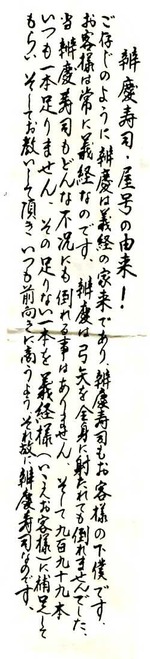 辨慶寿司・屋号の由来！
ご存じのように辨慶は義経の家来であり、辨慶寿司もお客様の下僕です。
お客様は常に義経なのです。辨慶は弓矢を全身に射たれても倒れませんでした、
当辨慶寿司もどんな不況にも倒れる事はありません、そして九百九十九本
いつも一本足りません、その足りない一本を義経様(いえお客様)に補足して
もらい、そしてお教いして頂きいつも前向に高うより それ故に辨慶寿司なのです。